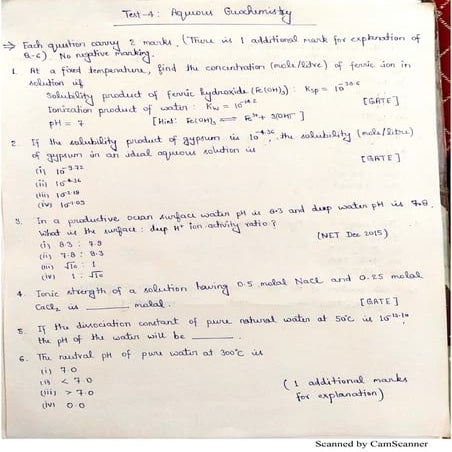 Test-4: Aqueous Geochemistry
⇒ Each question carry 2 marks. (There is 1 additional mark for explanation of
Q-6). No negative marking.
1. At a fixed temperature, find the concentration (mole/litre) of ferric ion in
solution if
Solubility product of ferric hydroxide (Fe(OH)₃) : Ksp =
Ionization product of water : Kw = 10⁻¹⁴·²
pH = 7 [Hint: Fe(OH)₃ ⇌ Fe³⁺ + 3(OH)⁻] [GATE]
2. If the solubility product of gypsum is 10⁻⁴·³⁶, the solubility (mole/litre)
of gypsum in an ideal aqueous solution is [GATE]
(i) 10⁻³·⁷²
(ii) 10⁻⁴·³⁶
(iii) 10⁻²·¹⁸
(iv) 10¹·⁰³
3. In a productive ocean surface water pH is 8.3 and deep water pH is 7.8.
What is the surface : deep H⁺ ion activity ratio?
(i) 8.3 : 7.8 (NET Dec 2015)
(ii) 7.8 : 8.3
(iii) √10 : 1
(iv) 1 : √10
4. Ionic strength of a solution having 0.5 molal NaCl and 0.25 molal
CaCl₂ is ______ molal. [GATE]
5. If the dissociation constant of pure natural water at 50°C is
the pH of the water will be ______.
6. The neutral pH of pure water at 300°C is
(i) 7.0
(ii) < 7.0
(iii) > 7.0
(iv) 0.0
(1 additional marks
for explanation)
Scanned by CamScanner